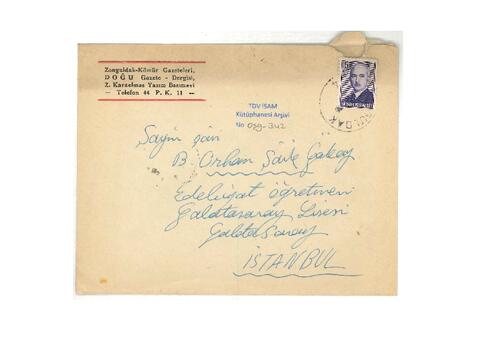 Zonguldak-Kömür Gazeteleri,
DOĞU Gazete - Dergisi,
Z. Karaelmas Yazım Basımevi
— Telefon 44 P. K. 11 —
TDV İSAM
Kütüphanesi Arşivi
No 059-342
15
Sayın için
B. Orhan Şaik Gökay
Edebiyat öğretmeni
Galatasaray Lisesi
Galatasaray
İSTANBUL